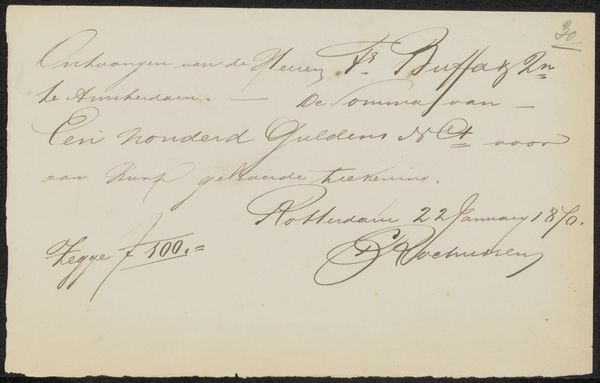 30
Ontvangen van de Heeren Fs. Buffa & Zn
te Amsterdam. — De Somma van —
Een honderd Guldens N Ct voor
aan hun geleverde teekening.
Rotterdam 22 January 1870.
Zegge f 100.=
C Rochussen